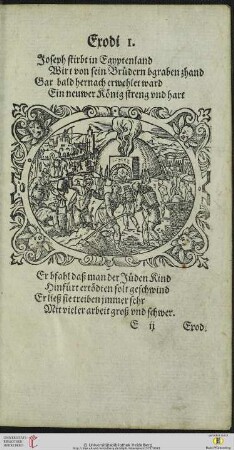 Exodi 1.
Joseph stirbt in Egyptenland
Wirt von sein Brüdern bgraben zhand
Gar bald hernach erwehlet ward
Ein neuwer König streng vnd hart
Er bfahl daß man der Jüden Kind
Hinfürt ertödten solt geschwind
Er ließ sie treiben jmmer sehr
Mit vieler arbeit groß vnd schwer.
E ij Exod.
© Universitätsbibliothek Heidelberg